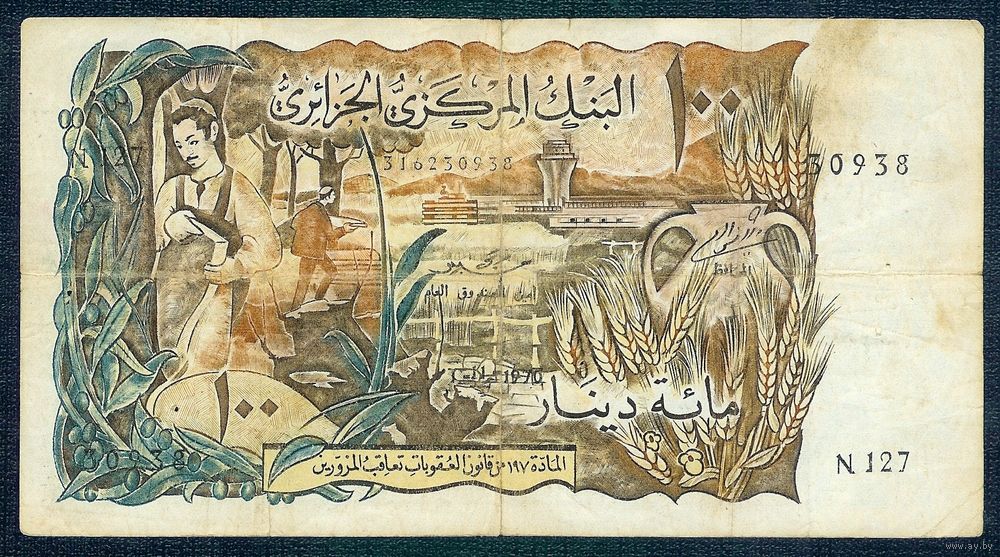 البنك المركزي الجزائري
١٠٠
N 127
316230938
30938
المحافظ
أمين الصندوق العام
1970
مائة دينار
١٠٠
30938
المادة ١٩٧ من قانون العقوبات تعاقب المزورين
N 127
www.ay.by